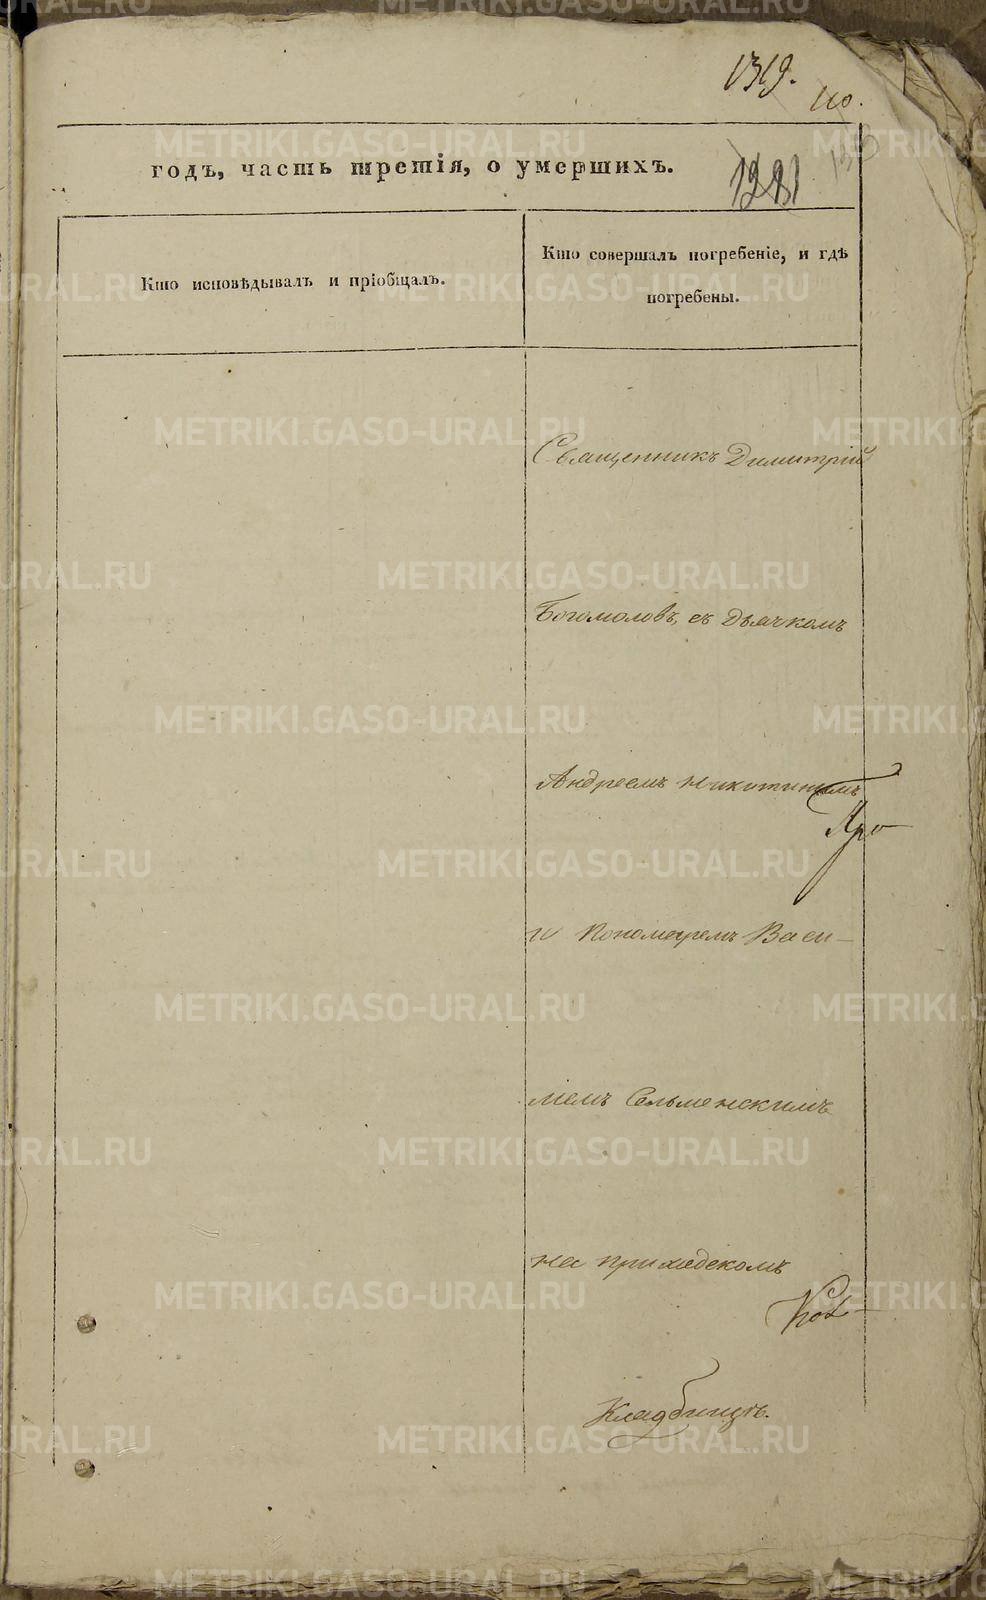 1319.
110.
годъ, часть третія, о умершихъ.
Кто исповѣдывалъ и пріобщалъ.
Кто совершалъ погребеніе, и гдѣ
погребены.
Священникъ Димитрій
Богомоловъ, съ дьячкомъ
Андреемъ Никитинымъ
и Пономаремъ Васи-
ліемъ Сельменскимъ
на приходскомъ
Кладбищѣ.
METRIKI.GASO-URAL.RU